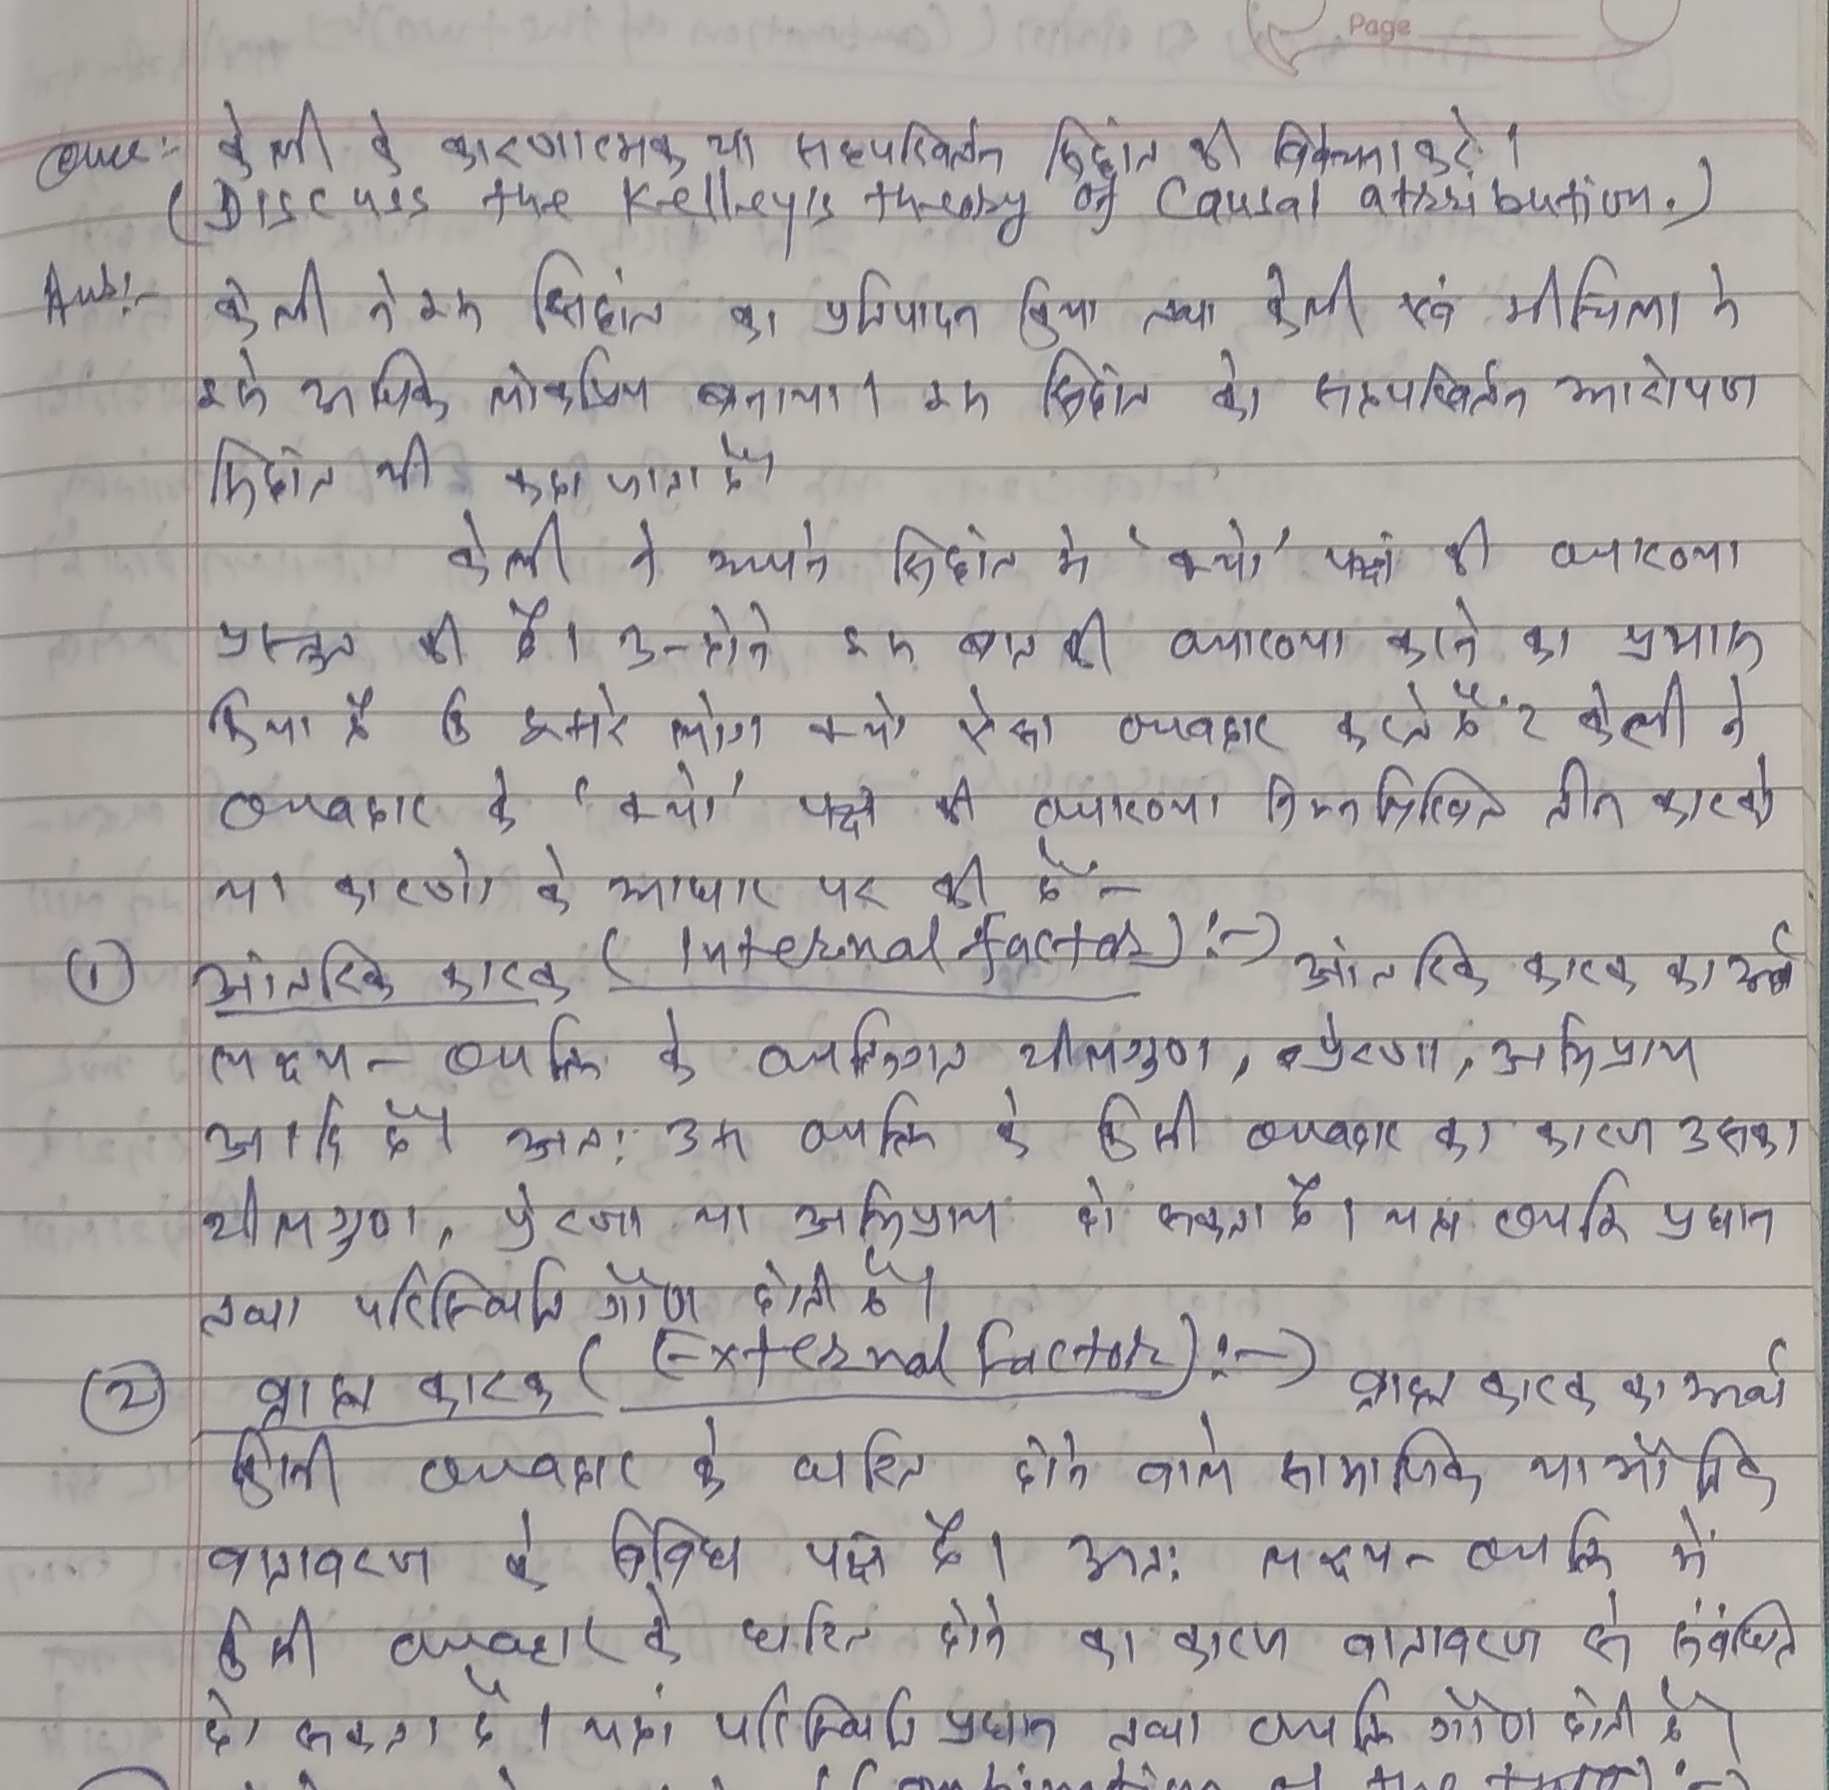 Page
Ques:- केली के कारणात्मक या सहपरिवर्तन सिद्धांत की विवेचना करें।
(Discuss the Kelley's theory of Causal attribution.)
Ans:- केली ने इस सिद्धांत का प्रतिपादन किया तथा केली एवं मीचिला ने
इसे अधिक लोकप्रिय बनाया। इस सिद्धांत को सहपरिवर्तन आरोपण
सिद्धांत भी कहा जाता है।
केली ने अपने सिद्धांत में 'क्यों' पक्ष की व्याख्या
प्रस्तुत की है। उन्होंने इस बात की व्याख्या करने का प्रयास
किया है कि दूसरे लोग क्यों ऐसा व्यवहार करते हैं? केली ने
व्यवहार के 'क्यों' पक्ष की व्याख्या निम्नलिखित तीन कारकों
या कारणों के आधार पर की है:-
① आंतरिक कारक (Internal factor):-) आंतरिक कारक का अर्थ
लक्ष्य-व्यक्ति के व्यक्तिगत शीलगुण, प्रेरणा, अभिप्राय
आदि है। अतः उस व्यक्ति के किसी व्यवहार का कारण उसका
शीलगुण, प्रेरणा या अभिप्राय हो सकता है। यहां व्यक्ति प्रधान
तथा परिस्थिति गौण होती है।
② बाह्य कारक (External factor):-) बाह्य कारक का अर्थ
किसी व्यवहार के घटित होने वाले सामाजिक या भौतिक
वातावरण के विविध पक्ष है। अतः लक्ष्य-व्यक्ति में
किसी व्यवहार के घटित होने का कारण वातावरण से संबंधित
हो सकता है। यहां परिस्थिति प्रधान तथा व्यक्ति गौण होती है।
(Combination of the two):-